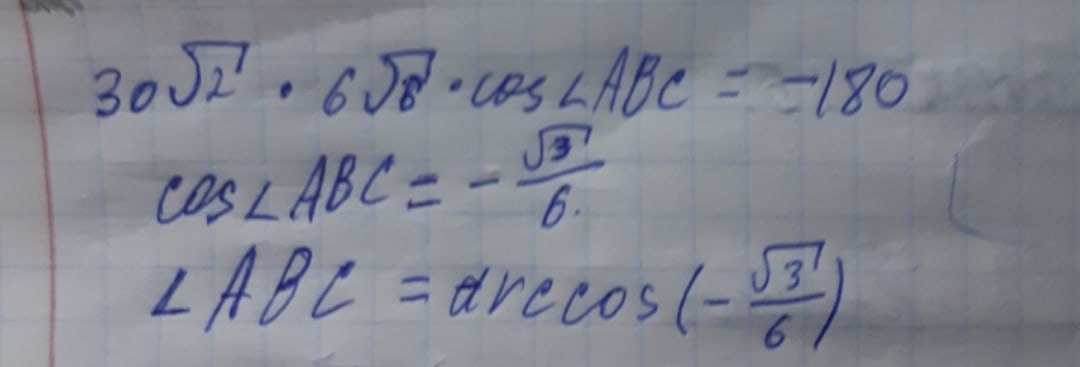 30√2 · 6√6 · cos∠ABC = -180
cos∠ABC = -√3/6.
∠ABC = arccos(-√3/6)